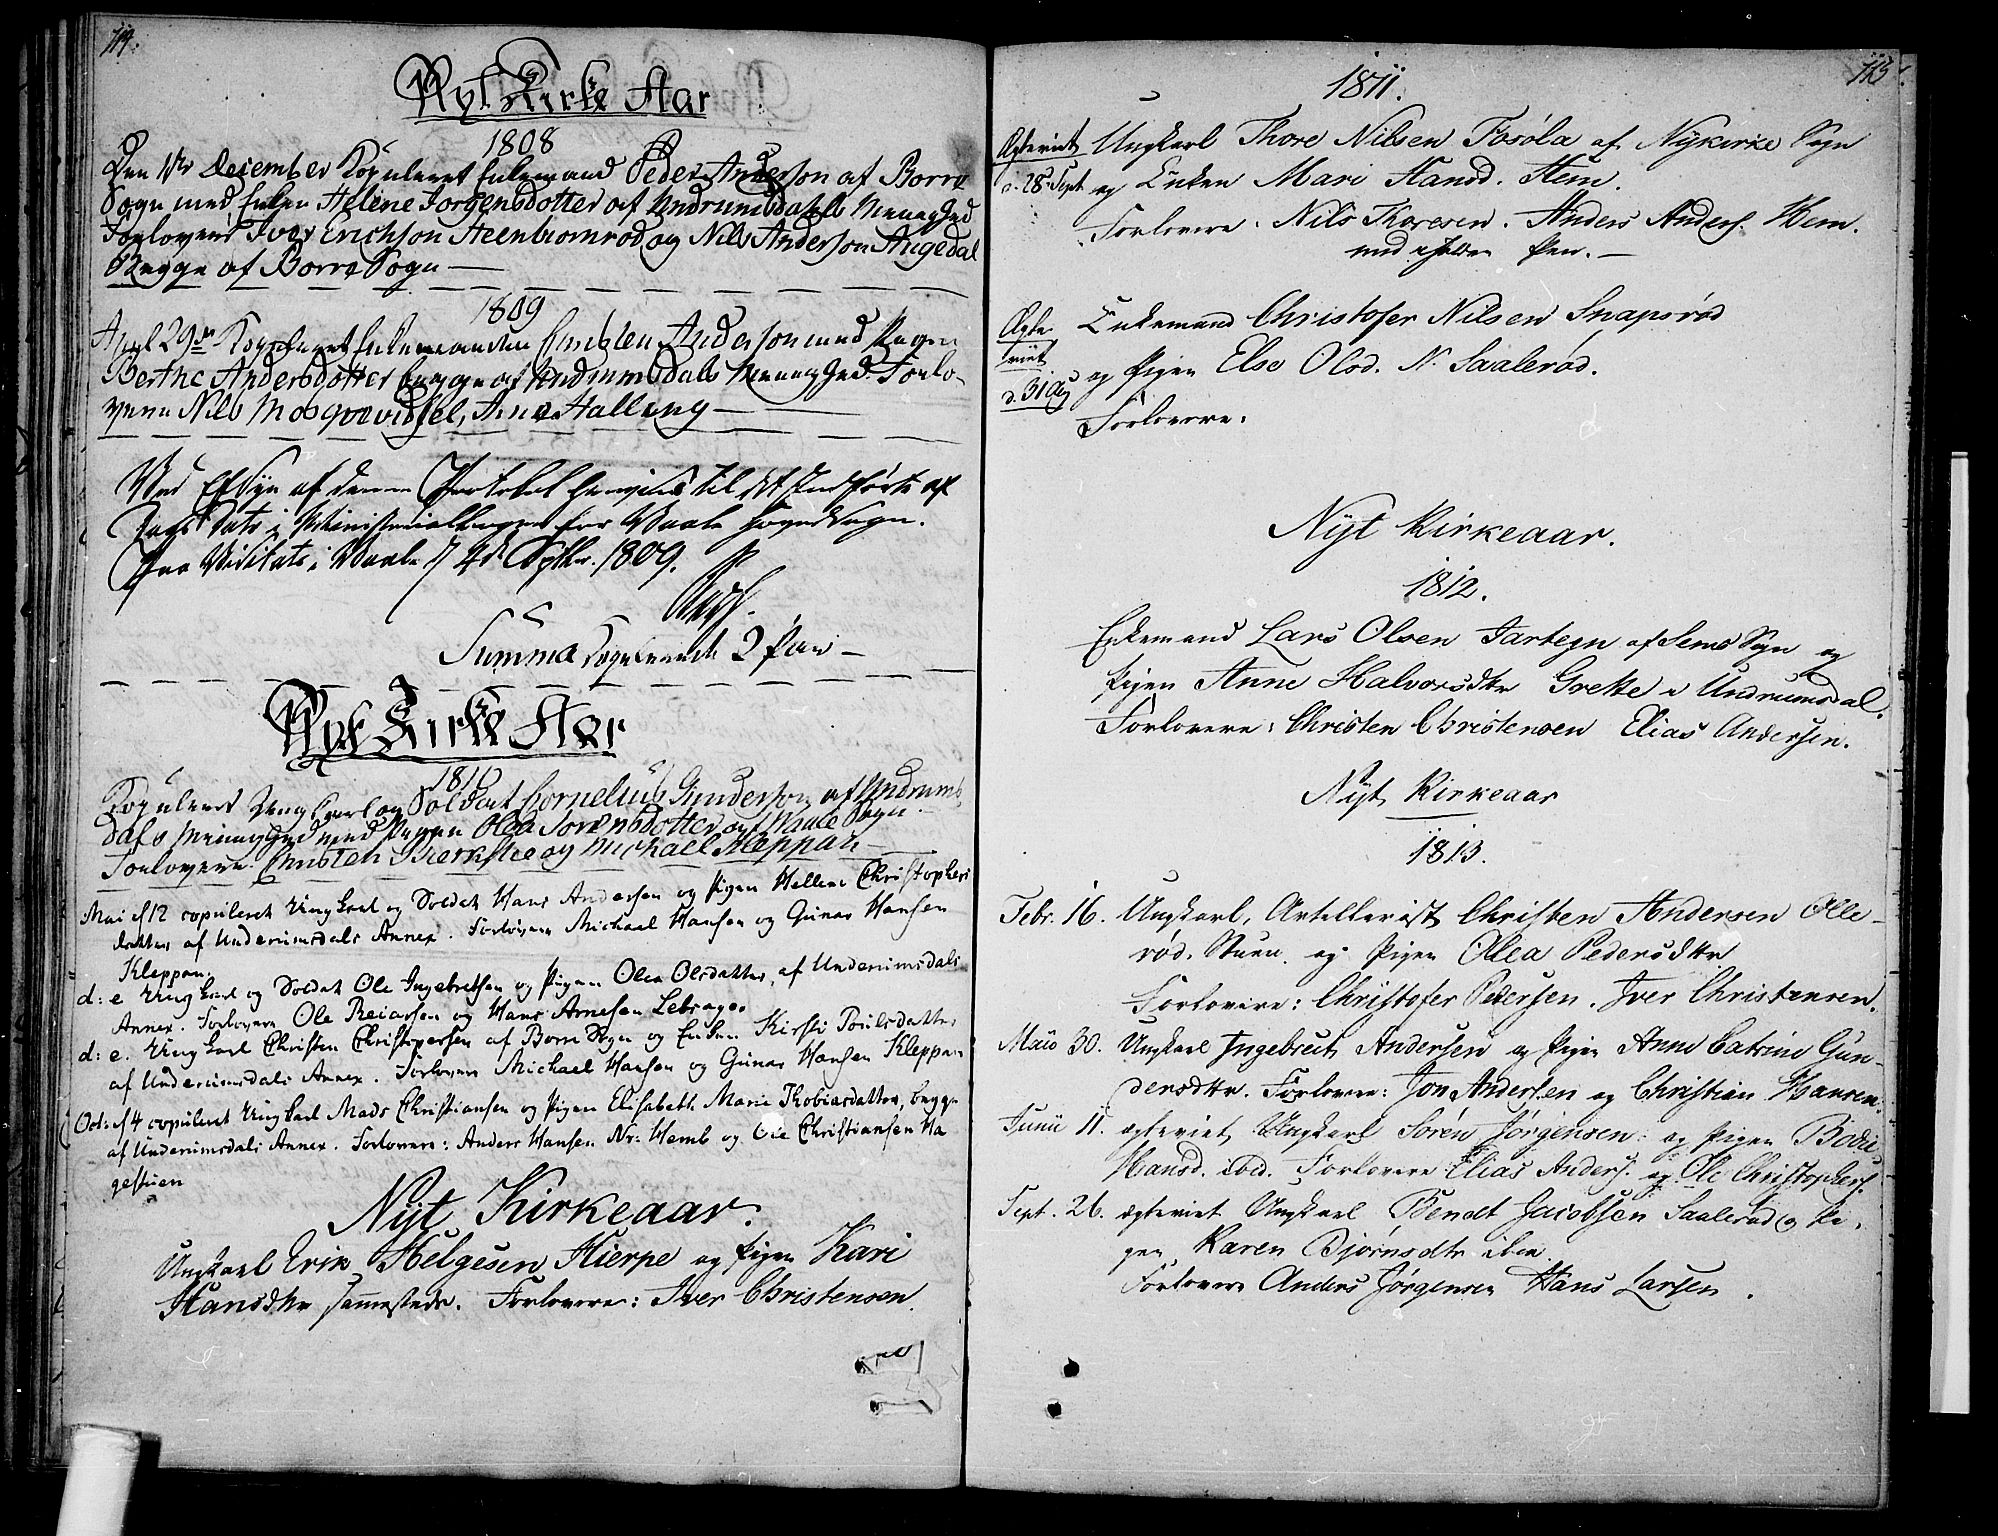 114.
Nyt Kirke Aar
1808
Den 1ste December Copuleret Enkemand Peder Anderson af Borre
Sogn med Enken Helene Jorgensdotter af Undrumsdals Menighed
Forlovere Iver Erichson Steenbromrød og Nils Anderson Augedal
Begge af Borre Sogn
1809
April 29de Copuleret Enkemanden Christen Anderson med Pigen
Berthe Andersdotter begge af Undrumsdals Menighed. Forlo-
vere Nils Mosgrevissel, Arne Halling
Ved Eftersyn af denne Protokol henvises til det Indførte af
Dags Dato i Ministerialbogen for Vaale Hovedsogn.
Paa Visitats i Vaale d 4de Septbr. 1809.
Summa Copulerede 2 Par
Nyt Kirke Aar
1810
Copuleret Ungkarl og Soldat Cornelius Gunderson af Undrums-
dals Menighed med Pigen Olea Sorensdotter af Waale Sogn.
Forlovere Christen Bierkøe og Michael Kleppan
Mai d 12 copuleret Ungkarl og Soldat Hans Andersen og Pigen Hellene Christophers
datter af Underimsdals Annex. Forlovere Michael Hansen og Gunar Hansen
Kleppan
d: e. Ungkarl og Soldat Ole Ingebretsen og Pigen Olea Olsdatter, af Underimsdals
Annex. Forlovere Ole Reiarsen og Hans Arnesen Lebsager
d: e. Ungkarl Christen Christopersen af Borre Sogn og Enken Kirsti Poulsdatter
af Underimsdals Annex. Forlovere Michael Hansen og Gunar Hansen Kleppan
Oct: d 4 copuleret Ungkarl Mads Christiansen og Pigen Elisabeth Marie Thobiasdatter, begge
af Underimsdals Annex. Forlovere: Anders Hansen Nr: Hemb og Ole Christiansen Ha
gestuen
Nyt Kirkeaar.
Ungkarl Erik Helgesen Hierpe og Pigen Kari
Hansdtr sammesteds. Forlovere: Iver Christensen.
113.
1811.
Ægteviet Ungkarl Thore Nilsen Fosøla af Nykirke Sogn
d. 28. Sept og Enken Mari Hansd. Hem.
Forlovere. Nils Thoresen. Anders Anders. Hem.
med Pen.
Ægte Enkemand Christofer Nilsen Snapsrød
viet og Pigen Else Olsd. N. Saalerød.
d. 31
Forlovere.
Nyt Kirkeaar.
1812.
Enkemand Lars Olsen Jartegn af Sems Sogn og
Pigen Anne Halvorsdtr Grette i Undrumsdal.
Forlovere: Christen Christensen Elias Andersen.
Nyt Kirkeaar
1813.
Febr. 16. Ungkarl, Artellerist Christen Andersen Olle-
rød. Stuen og Pigen Olea Pedersdtr
Forlovere: Christofer Pedersen. Iver Christensen.
Maio 30. Ungkarl Ingebret Andersen og Pigen Anne Catrine Gun-
dersdtr. Forlovere: Jon Andersen og Christian Hansen.
Junii 11. ægteviet Ungkarl Sören Jörgensen og Pigen Bodil
Hansd. ibid. Forlovere Elias Anders. og Ole Christophers.
Sept. 26. ægteviet Ungkarl Bendt Jacobsen Saalerød og Pi-
gen Karen Bjørnsdtr ibm
Forlovere Anders Jørgensen Hans Larsen.